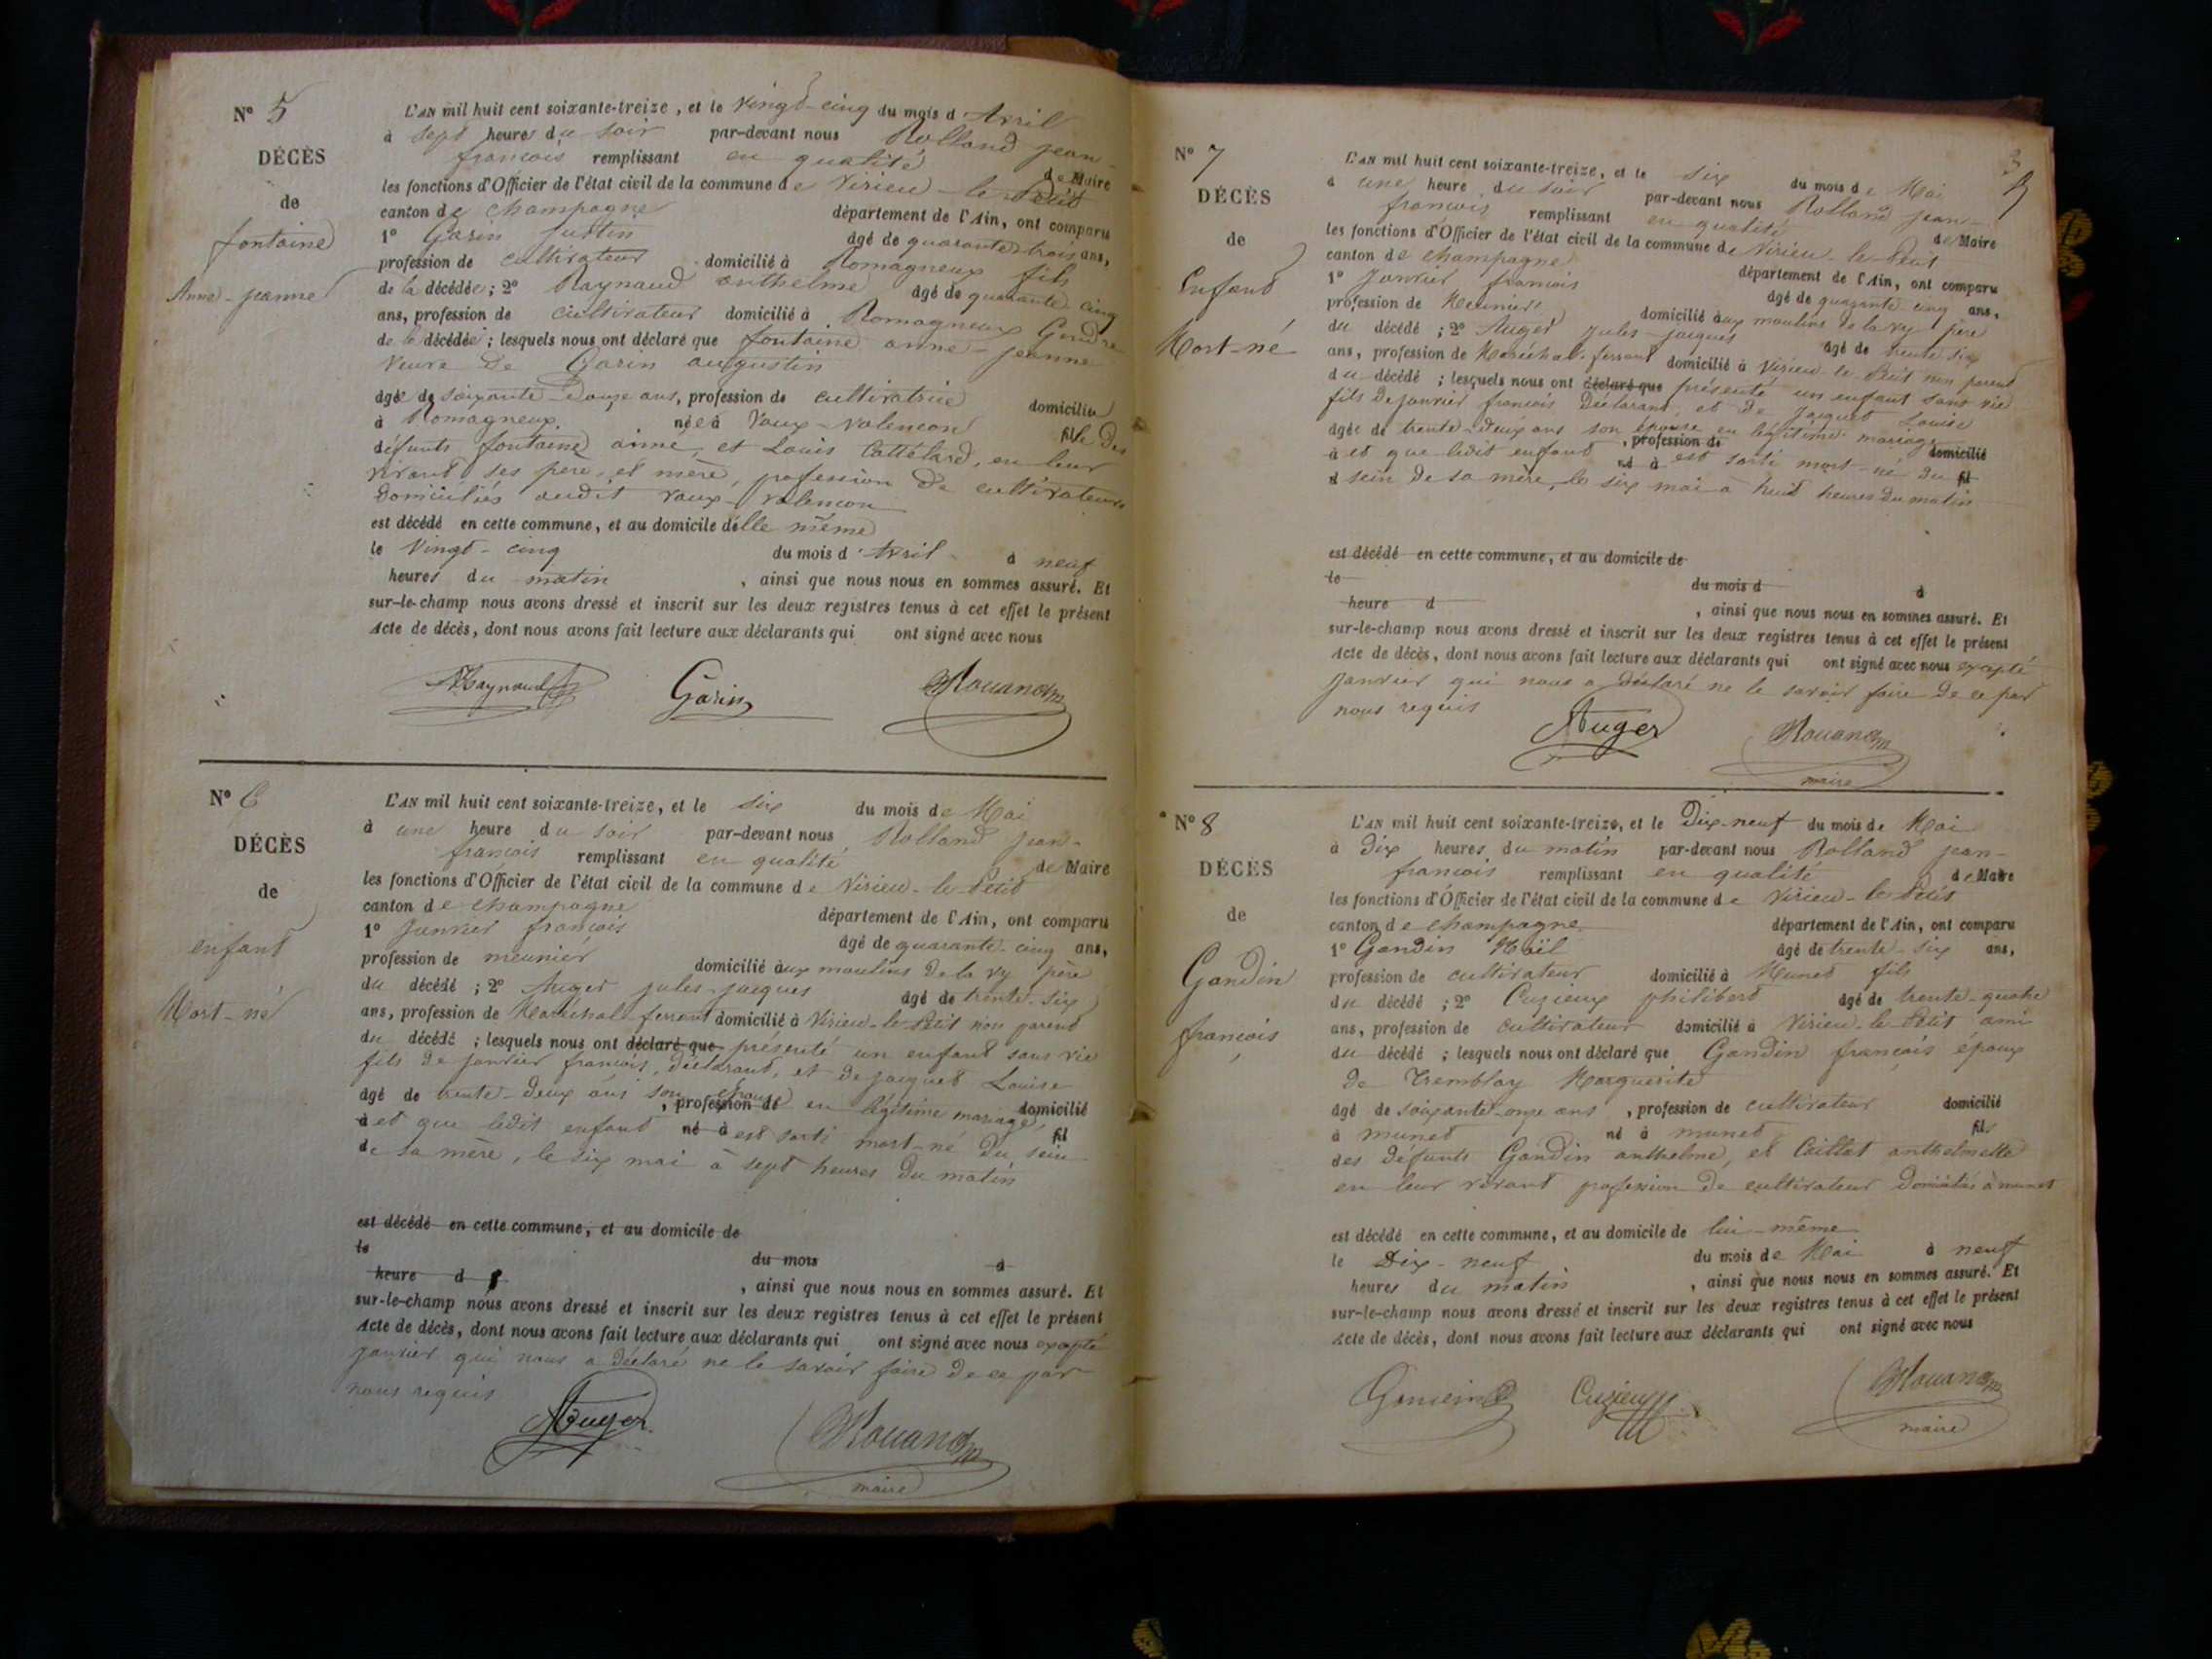 N° 5
DÉCÈS
de
fontaine
Anne-jeanne
L'AN mil huit cent soixante-treize, et le vingt-cinq du mois d'Avril
à sept heures du soir par-devant nous Rolland jean-
francois remplissant en qualité de Maire
les fonctions d'Officier de l'état civil de la commune de Virieu-le-Petit
canton de champagne département de l'Ain, ont comparu
1° Garin Justin âgé de quarante trois ans,
profession de cultivateur domicilié à Romagneux fils
de la décédée; 2° Raynaud anthelme âgé de quarante cinq
ans, profession de cultivateur domicilié à Romagneux Gendre
de la décédée; lesquels nous ont déclaré que fontaine anne-jeanne
veuve de Garin augustin
âgée de soixante-douze ans, profession de cultivatrice domiciliée
à Romagneux née à Vaux-valencon fille des
défunts fontaine aimé, et Louis Cattélard, en leur
vivant ses père et mère, profession de cultivateurs
domiciliés audit vaux-valencon
est décédé en cette commune, et au domicile d'elle même
le vingt-cinq du mois d'Avril à neuf
heures du matin, ainsi que nous nous en sommes assuré. Et
sur-le-champ nous avons dressé et inscrit sur les deux registres tenus à cet effet le présent
Acte de décès, dont nous avons fait lecture aux déclarants qui ont signé avec nous
Raynaud Garin
N° 6
DÉCÈS
de
enfant
Mort-né
L'AN mil huit cent soixante-treize, et le six du mois de Mai
à une heure du soir par-devant nous Rolland jean-
francois remplissant en qualité de Maire
les fonctions d'Officier de l'état civil de la commune de Virieu-le-Petit
canton de champagne département de l'Ain, ont comparu
1° Janvier francois âgé de quarante-cinq ans,
profession de meunier domicilié aux moulins de la vy père
du décédé; 2° Auger jules-jacques âgé de trente-six
ans, profession de Maréchal-ferrant domicilié à Virieu-le-Petit non parent
du décédé; lesquels nous ont déclaré que présenté un enfant sans vie
fils de janvier francois, déclarant, et de jacquet Louise
âgé de trente-deux ans son épouse, profession de en légitime mariage, domicilié
à et que ledit enfant né à est sorti mort-né du sein fil
de sa mère, le six mai à sept heures du matin
est décédé en cette commune, et au domicile de
le du mois à
heure d, ainsi que nous nous en sommes assuré. Et
sur-le-champ nous avons dressé et inscrit sur les deux registres tenus à cet effet le présent
Acte de décès, dont nous avons fait lecture aux déclarants qui ont signé avec nous excepté
janvier qui nous a déclaré ne le savoir faire de ce par
nous requis
Auger
maire
N° 7
DÉCÈS
de
Enfant
Mort-né
L'AN mil huit cent soixante-treize, et le six du mois de Mai
à une heure du soir par-devant nous Rolland jean-
francois remplissant en qualité de Maire
les fonctions d'Officier de l'état civil de la commune de Virieu-le-Petit
canton de champagne département de l'Ain, ont comparu
1° Janvier francois âgé de quarante cinq ans,
profession de Meunier domicilié aux moulins de la vy père
du décédé; 2° Auger jules-jacques âgé de trente six
ans, profession de Maréchal-ferrant domicilié à Virieu-le-Petit non parent
du décédé; lesquels nous ont déclaré que présenté un enfant sans vie
fils de janvier francois déclarant, et de jacquet Louise
âgée de trente-deux ans son épouse en légitime mariage, profession de domicilié
à et que ledit enfant né à est sorti mort-né du fil
d sein de sa mère, le six mai à huit heures du matin
est décédé en cette commune, et au domicile de
le du mois d à
heure d, ainsi que nous nous en sommes assuré. Et
sur-le-champ nous avons dressé et inscrit sur les deux registres tenus à cet effet le présent
Acte de décès, dont nous avons fait lecture aux déclarants qui ont signé avec nous excepté
janvier qui nous a déclaré ne le savoir faire de ce par
nous requis
Auger
maire
N° 8
DÉCÈS
de
Gandin
francois
L'AN mil huit cent soixante-treize, et le Dix-neuf du mois de Mai
à Dix heures du matin par-devant nous Rolland jean-
francois remplissant en qualité de Maire
les fonctions d'Officier de l'état civil de la commune de Virieu-le-Petit
canton de champagne département de l'Ain, ont comparu
1° Gandin Noël âgé de trente-six ans,
profession de cultivateur domicilié à Munet fils
du décédé; 2° Cuzieux philibert âgé de trente-quatre
ans, profession de cultivateur domicilié à Virieu-le-Petit ami
du décédé; lesquels nous ont déclaré que Gandin francois époux
de Tremblay Marguerite
âgé de soixante-onze ans, profession de cultivateur domicilié
à munet né à munet fils
des défunts Gandin anthelme, et Caillat anthelmette
en leur vivant profession de cultivateur domiciliés à munet
est décédé en cette commune, et au domicile de lui-même
le Dix-neuf du mois de Mai à neuf
heures du matin, ainsi que nous nous en sommes assuré. Et
sur-le-champ nous avons dressé et inscrit sur les deux registres tenus à cet effet le présent
Acte de décès, dont nous avons fait lecture aux déclarants qui ont signé avec nous
Cuzieux
maire